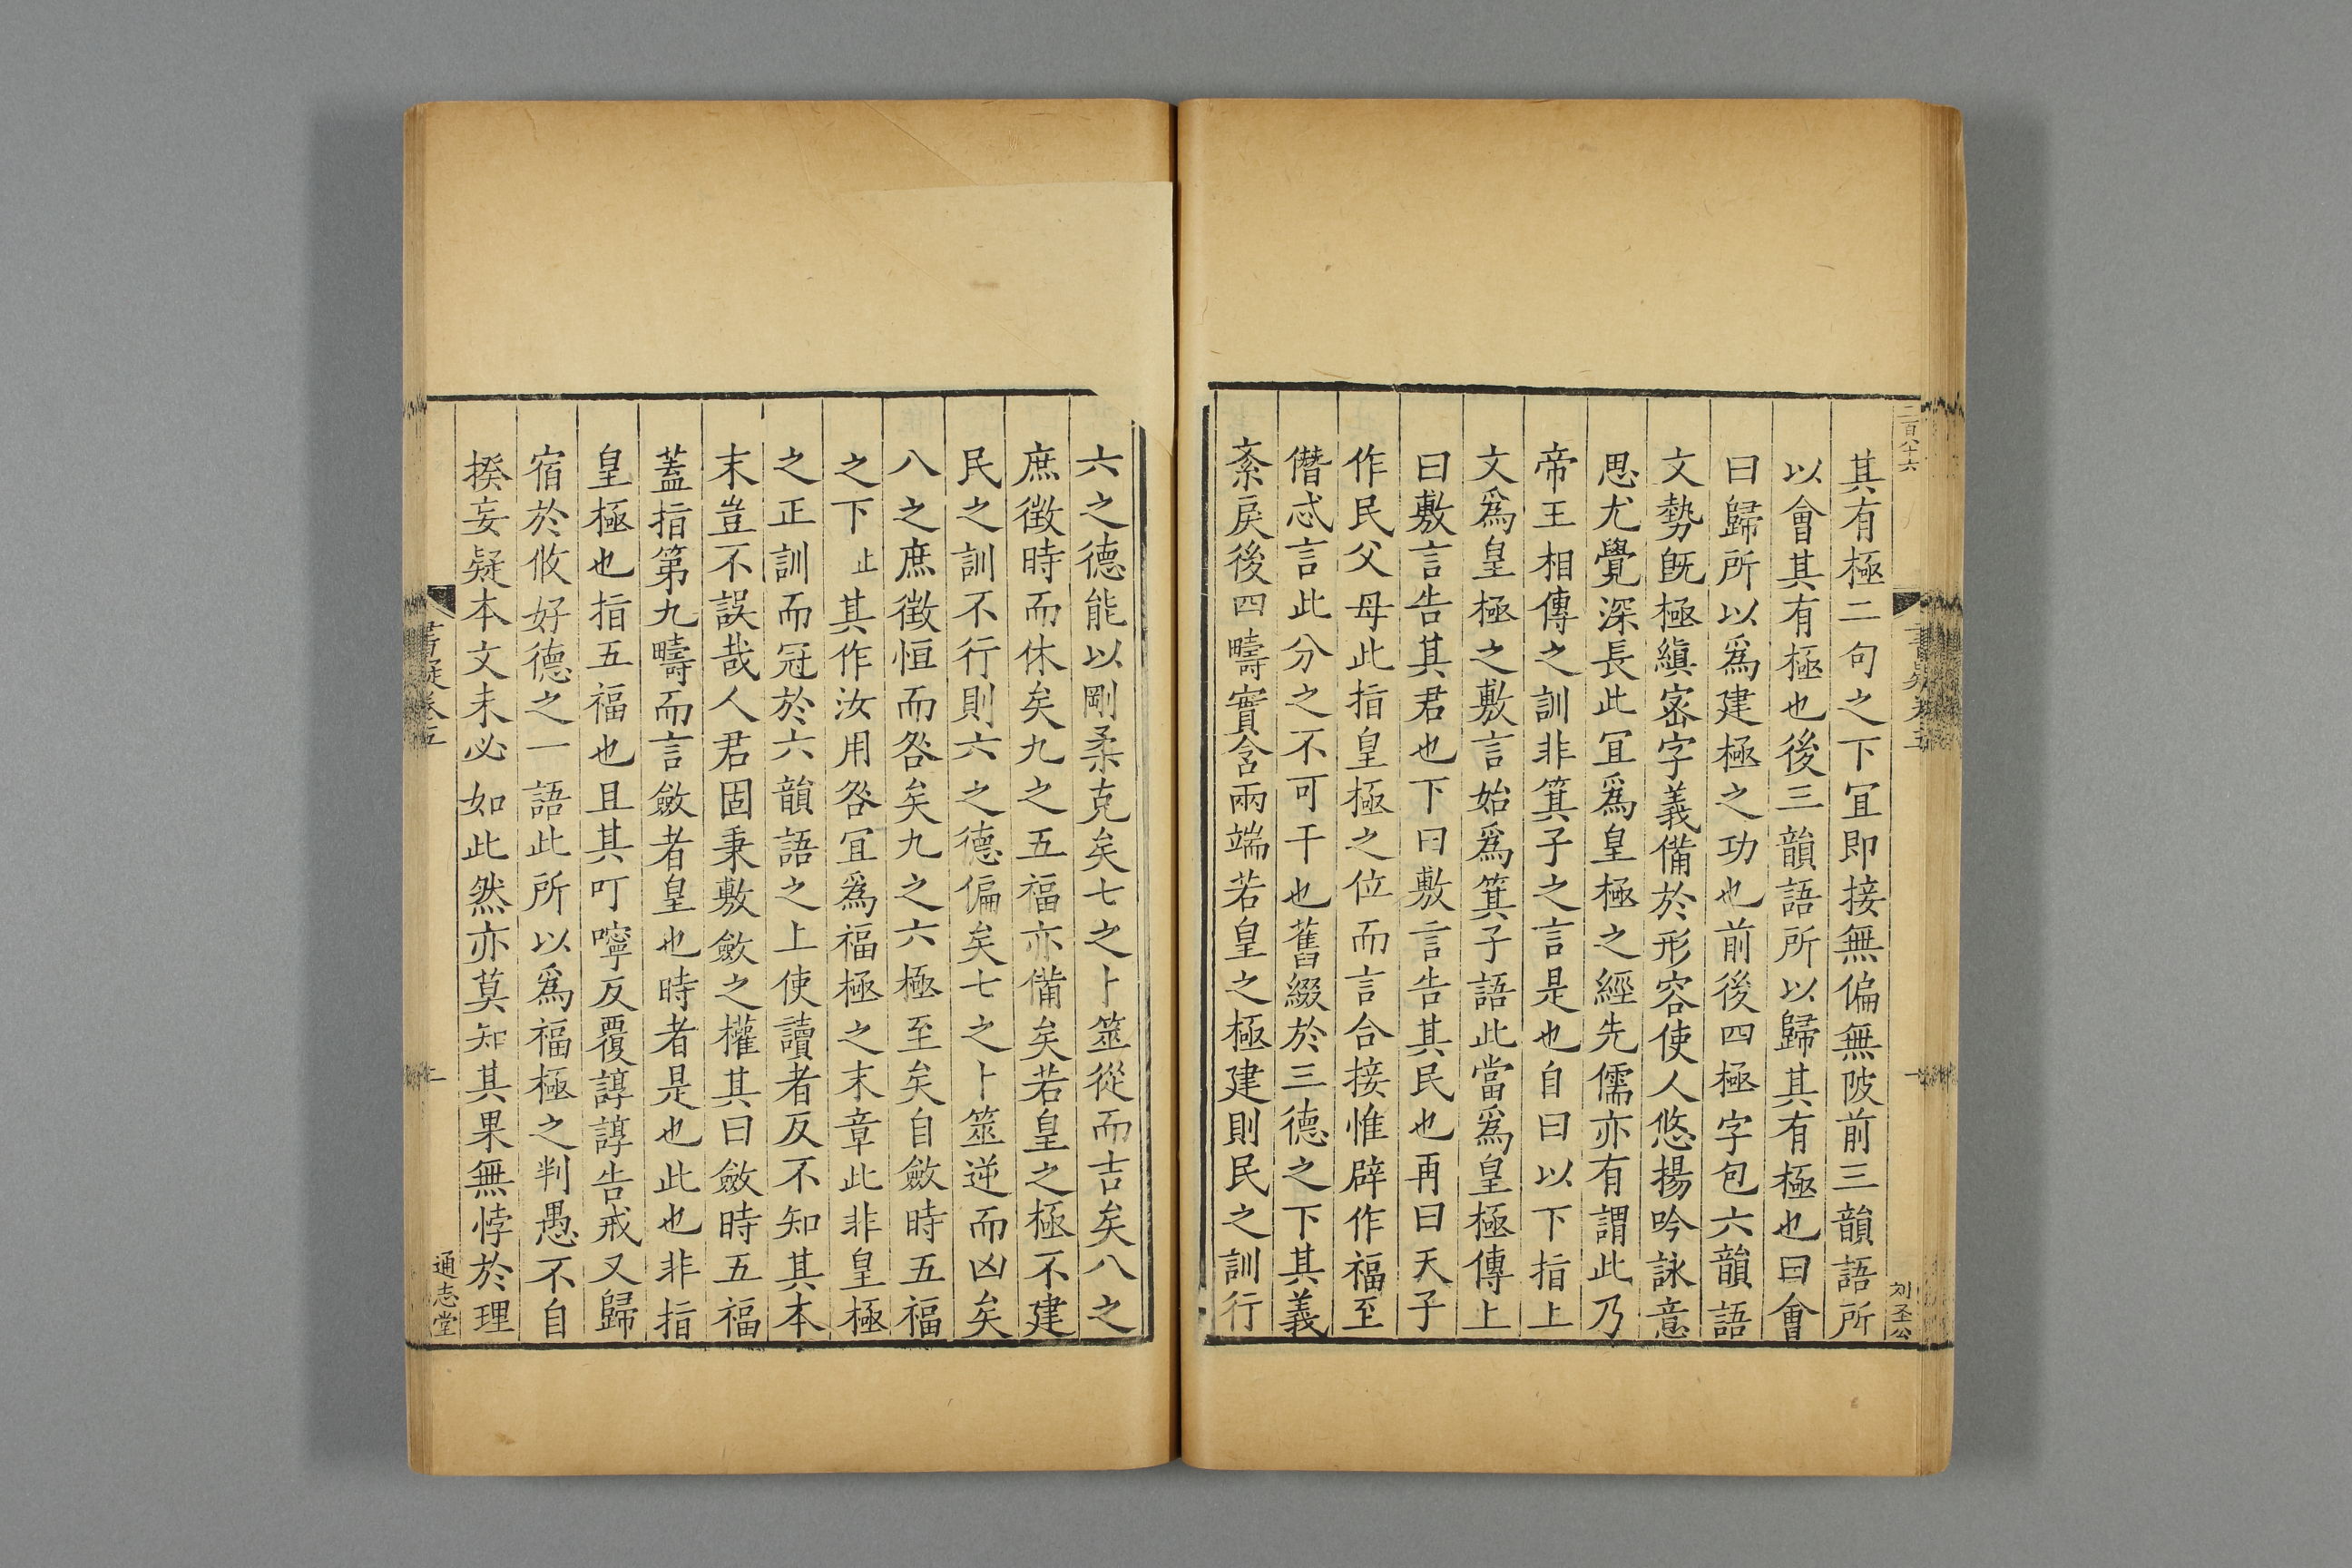 二百八十六
其有極二句之下冝即接無偏無陂前三韻語所
以會其有極也後三韻語所以歸其有極也曰會
曰歸所以爲建極之功也前後四極字包六韻語
文勢旣極縝密字義備於形容使人悠揚吟詠意
思尤覺深長此冝爲皇極之經先儒亦有謂此乃
帝王相傳之訓非箕子之言是也自曰以下指上
文爲皇極之敷言始爲箕子語此當爲皇極傳上
曰敷言告其君也下曰敷言告其民也再曰天子
作民父母此指皇極之位而言合接惟辟作福至
僭忒言此分之不可干也舊綴於三德之下其義
紊戾後四疇實含兩端若皇之極建則民之訓行
六之德能以剛柔克矣七之卜筮從而吉矣八之
庶徴時而休矣九之五福亦備矣若皇之極不建
民之訓不行則六之德偏矣七之卜筮逆而凶矣
八之庶徴恒而咎矣九之六極至矣自斂時五福
之下止其作汝用咎冝爲福極之末章此非皇極
之正訓而冠於六韻語之上使讀者反不知其本
末豈不誤哉人君固秉敷斂之權其曰斂時五福
蓋指第九疇而言斂者皇也時者是也此也非指
皇極也指五福也且其叮嚀反覆諄諄告戒又歸
宿於攸好德之一語此所以爲福極之判愚不自
揆妄疑本文未必如此然亦莫知其果無悖於理
書疑卷五
通志堂